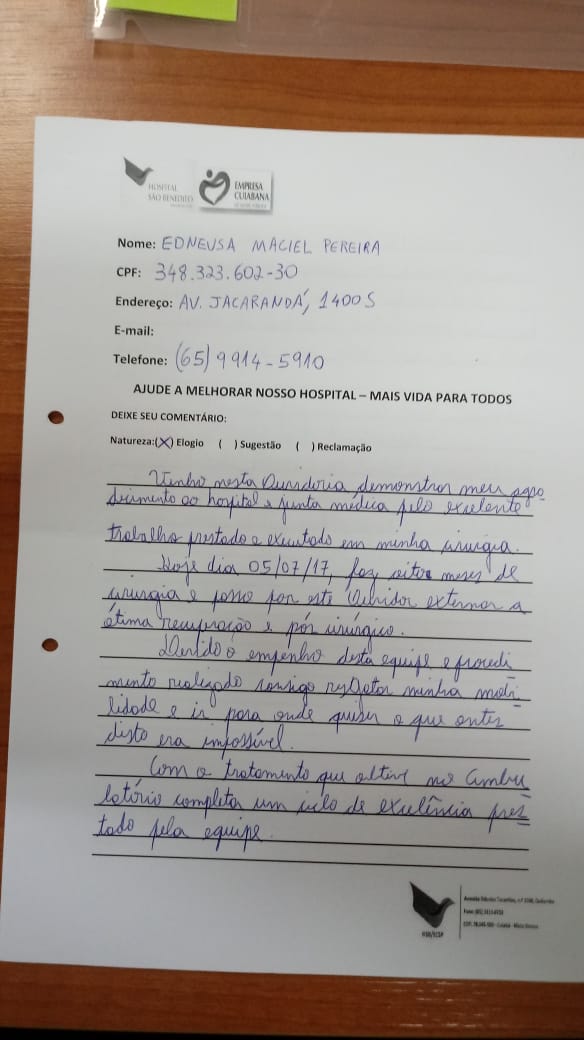 HOSPITAL
SÃO BENEDITO
EMPRESA
CUIABANA
Nome: EDNEUSA MACIEL PEREIRA
CPF: 348.323.602-30
Endereço: AV. JACARANDÁ, 1400 S
E-mail:
Telefone: (65) 9914-5910
AJUDE A MELHORAR NOSSO HOSPITAL – MAIS VIDA PARA TODOS
DEIXE SEU COMENTÁRIO:
Natureza:(X) Elogio ( ) Sugestão ( ) Reclamação
Venho nesta Ouvidoria demonstrar meu agra-
decimento ao hospital e junta médica pelo exelente
trabalho prestado e executado em minha cirurgia.
Hoje dia 05/07/17, faz oito meses de
cirurgia e posso por este Ouvidor externar a
ótima recuperação e pós cirúrgico.
Devido o empenho desta equipe e procedi-
mento realizado consigo resgatar minha mobi-
lidade e ir para onde quiser o que antes
disto era impossível.
Com o tratamento que obtive no Ambu-
latório completa um ciclo de exelência pres-
tado pela equipe.
HSB/ECSP